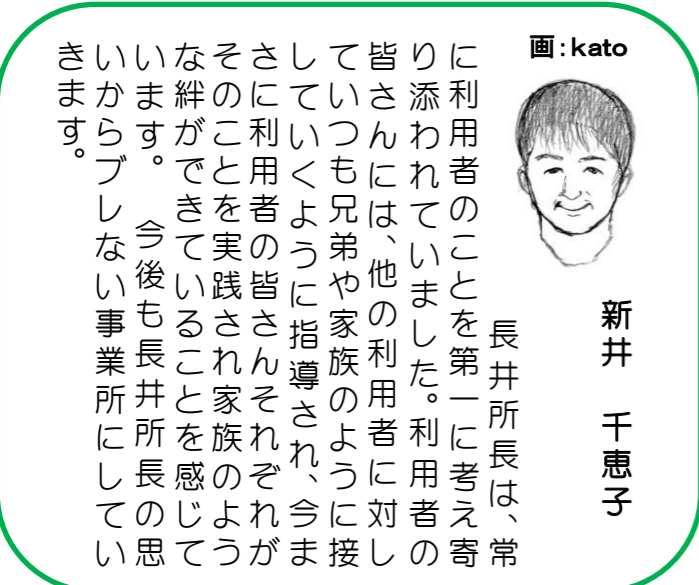 画：kato
新井　千恵子
長井所長は、常
に利用者のことを第一に考え寄
り添われていました。利用者の
皆さんには、他の利用者に対し
ていつも兄弟や家族のように接
していくように指導され、今ま
さに利用者の皆さんそれぞれが
そのことを実践され家族のよう
な絆ができていることを感じて
います。　今後も長井所長の思
いからブレない事業所にしてい
きます。